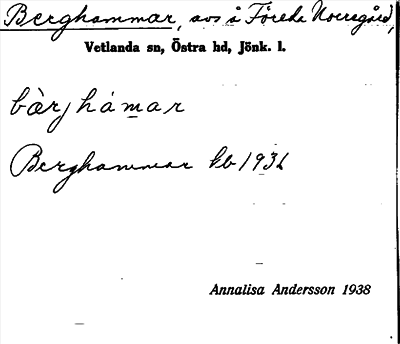 Berghammar, avs å Föreda Norregård,
Vetlanda sn, Östra hd, Jönk. l.
bàrjhámar
Berghammar kb 1931
Annalisa Andersson 1938